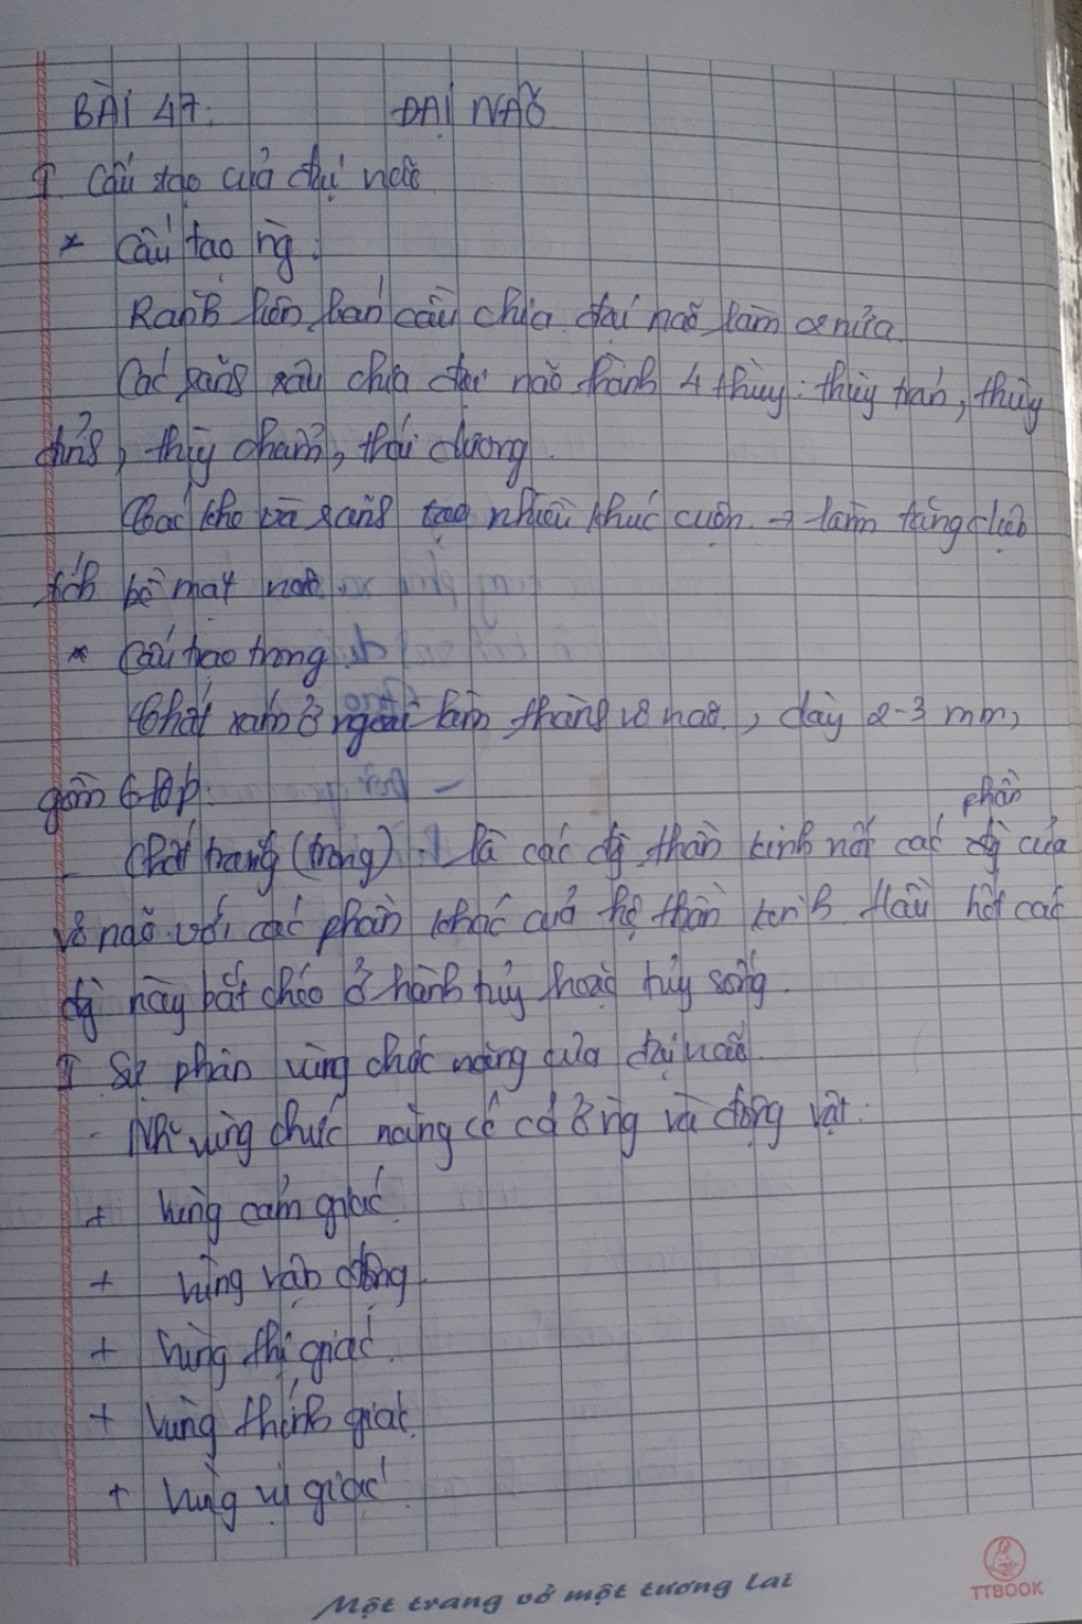 BÀI 47: ĐẠI NÃO
I Cấu tạo của đại não
* Cấu tạo ng:
Rãnh liên bán cầu chia đại não làm 2 nửa.
Các rãnh sâu chia đại não thành 4 thùy: thùy trán, thùy
đỉnh, thùy chẩm, thái dương.
Các khe và rãnh tạo nhiều khúc cuộn → làm tăng diện
tích bề mặt não.
* Cấu tạo trong
Chất xám ở ngoài làm thành vỏ não, dày 2-3 mm,
gồm 6 lớp.
phần
Chất trắng (trong) là các đg thần kinh nối các đg của
vỏ não với các phần khác của hệ thần kinh. Hầu hết các
đg này bắt chéo ở hành tủy hoặc tủy sống.
II Sự phân vùng chức năng của đại não
- Nh~ vùng chức năng có cả ở ng và động vật.
+ Vùng cảm giác
+ Vùng vận động
+ Vùng thị giác.
+ Vùng thính giác.
+ Vùng vị giác.
Một trang vở một tương lai
TTBOOK